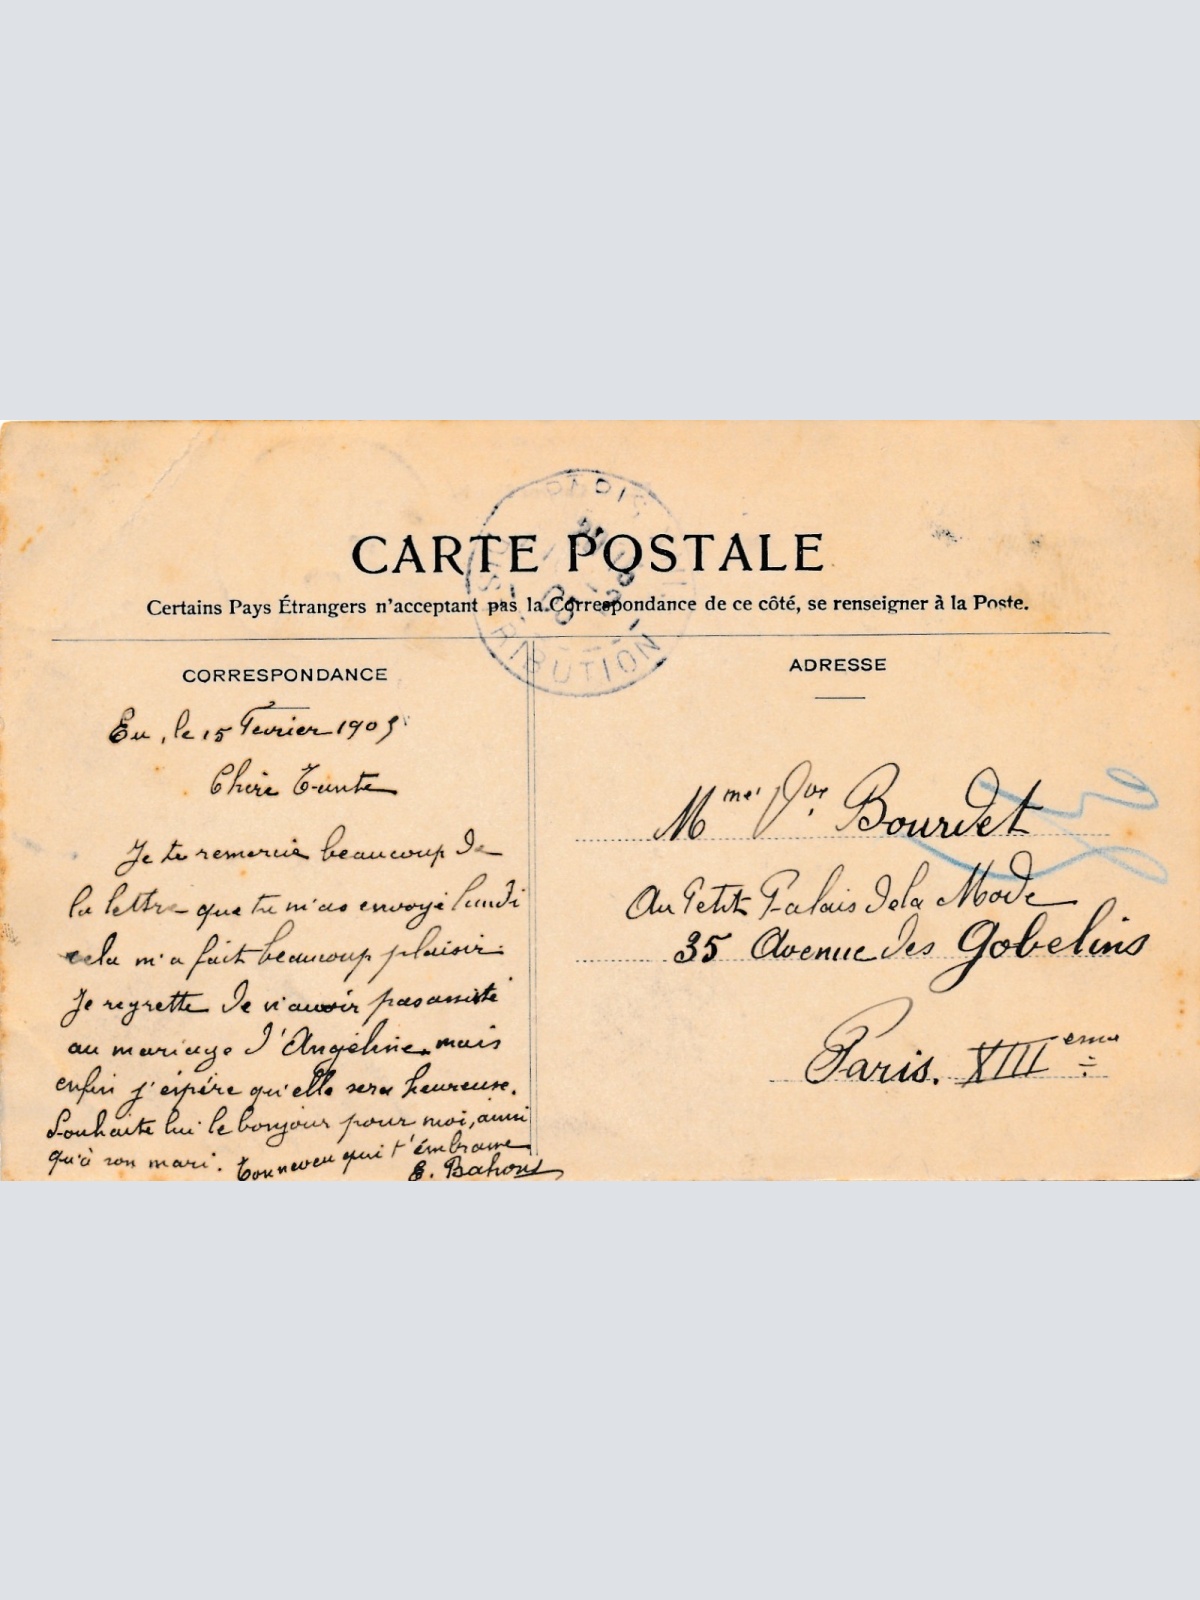 PARIS
DISTRIBUTION
CARTE POSTALE
Certains Pays Étrangers n'acceptant pas la Correspondance de ce côté, se renseigner à la Poste.
CORRESPONDANCE
Eu, le 15 Fevrier 1905
Chère Tante
Je te remercie beaucoup de
la lettre que tu m'as envoyé lundi
cela m'a fait beaucoup plaisir.
Je regrette de n'avoir pas assisté
au mariage d'Angéline, mais
enfin j'éspére qu'elle sera heureuse.
Souhaite lui le bonjour pour moi, aussi
qu'à son mari. Ton neveu qui t'émbrasse
E. Bahous
ADRESSE
Mme Vve Bourdet
Au Petit Palais de la Mode
35 Avenue des Gobelins
Paris. XIIIeme